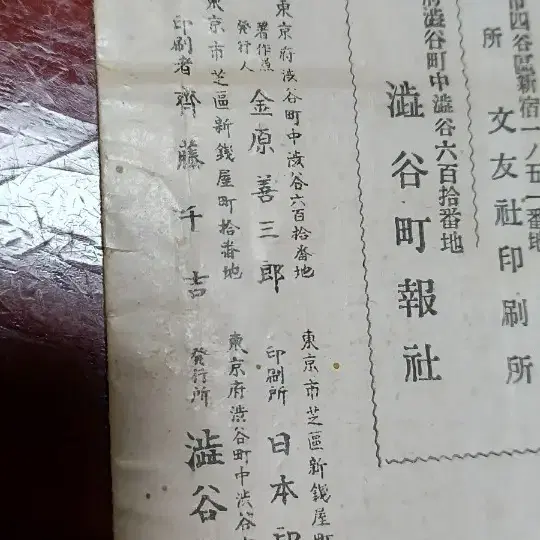 市四谷區新宿一八五一番地
所 文友社印刷所
澁谷町中澁谷六百拾番地
澁谷町報社
東京府澁谷町中澁谷六百拾番地
著作兼
發行人 金原善三郎
東京市芝區新錢屋町拾番地
印刷者 齊藤千吉
東京市芝區新錢屋町
印刷所 日本印
東京府澁谷町中澁谷
發行所 澁谷